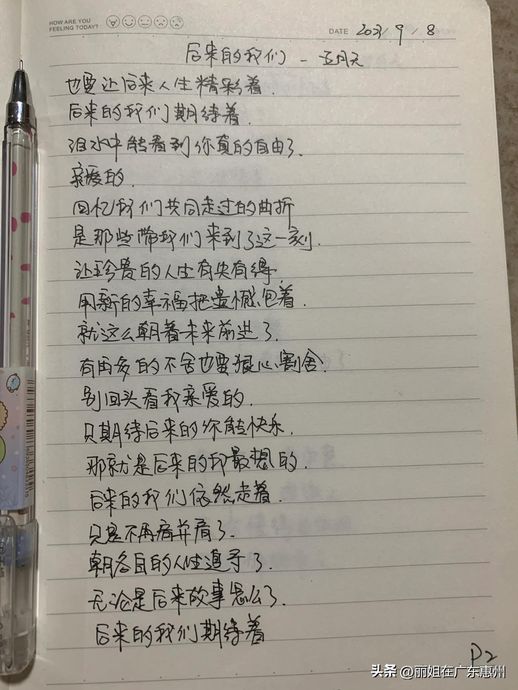 HOW ARE YOU
FEELING TODAY?
DATE 2021/9/8
后来的我们 - 五月天
也要让后来人生精彩着.
后来的我们期待着.
泪水中能看到你真的自由了.
亲爱的.
回忆我们共同走过的曲折
是那些带我们来到了这一刻.
让珍贵的人生有失有得.
用新的幸福把遗憾包着.
就这么朝着未来前进了.
有再多的不舍也要狠心割舍.
别回头看我亲爱的.
只期待后来的你能快乐.
那就是后来的我最想的.
后来的我们依然走着.
只是不再并肩了.
朝各自的人生追寻了.
无论是后来故事怎么了.
后来的我们期待着
P2
头条 @丽姐在广东惠州